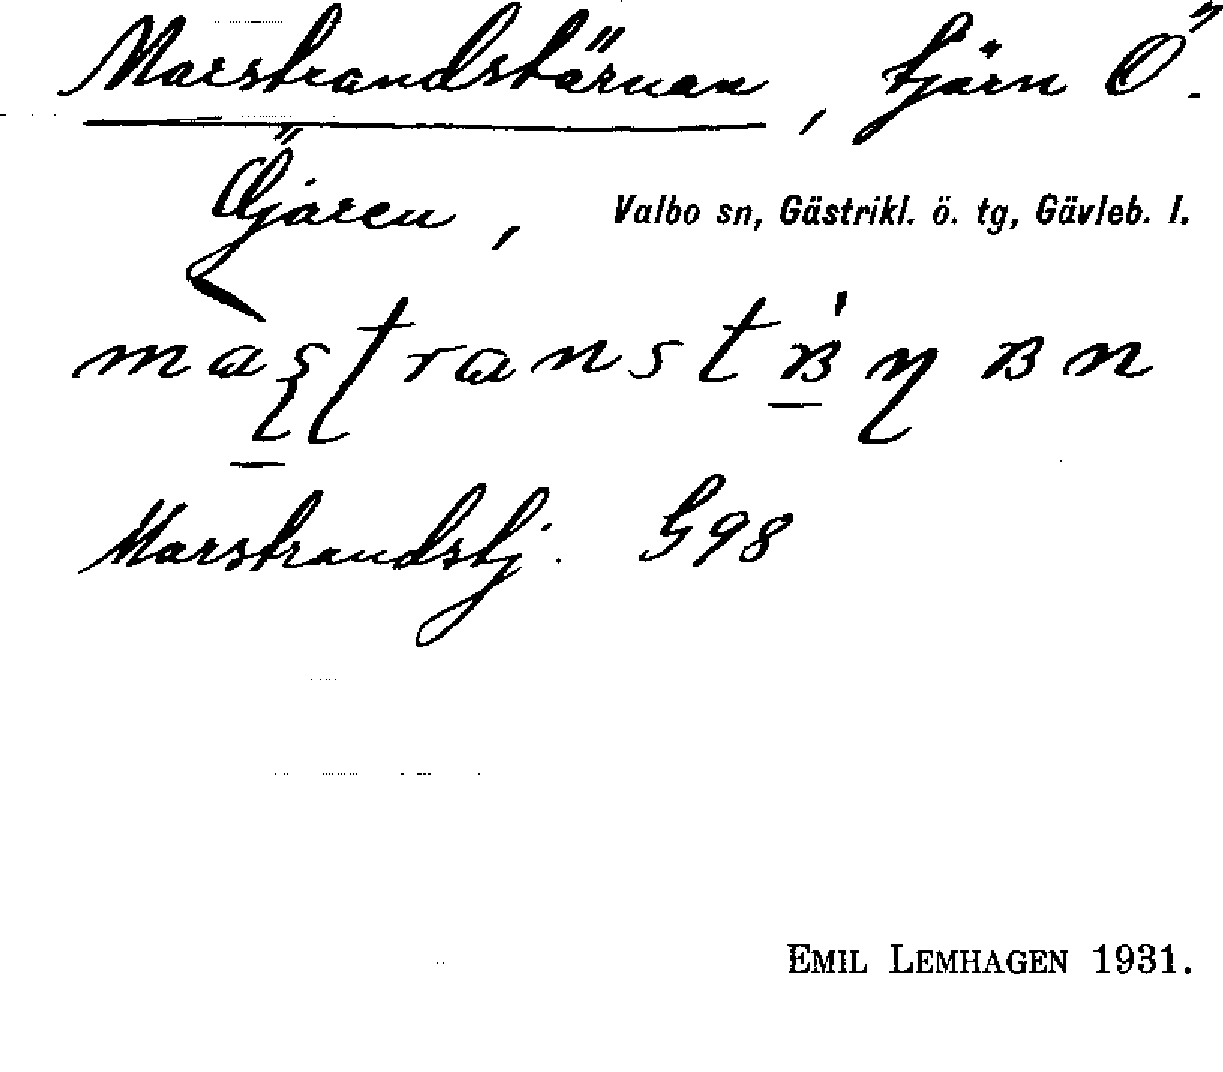 Marstrandstärnan, tjärn Ö.
Öjaren, Valbo sn, Gästrikl. ö. tg, Gävleb. l.
Marstrandstj. G98
EMIL LEMHAGEN 1931.